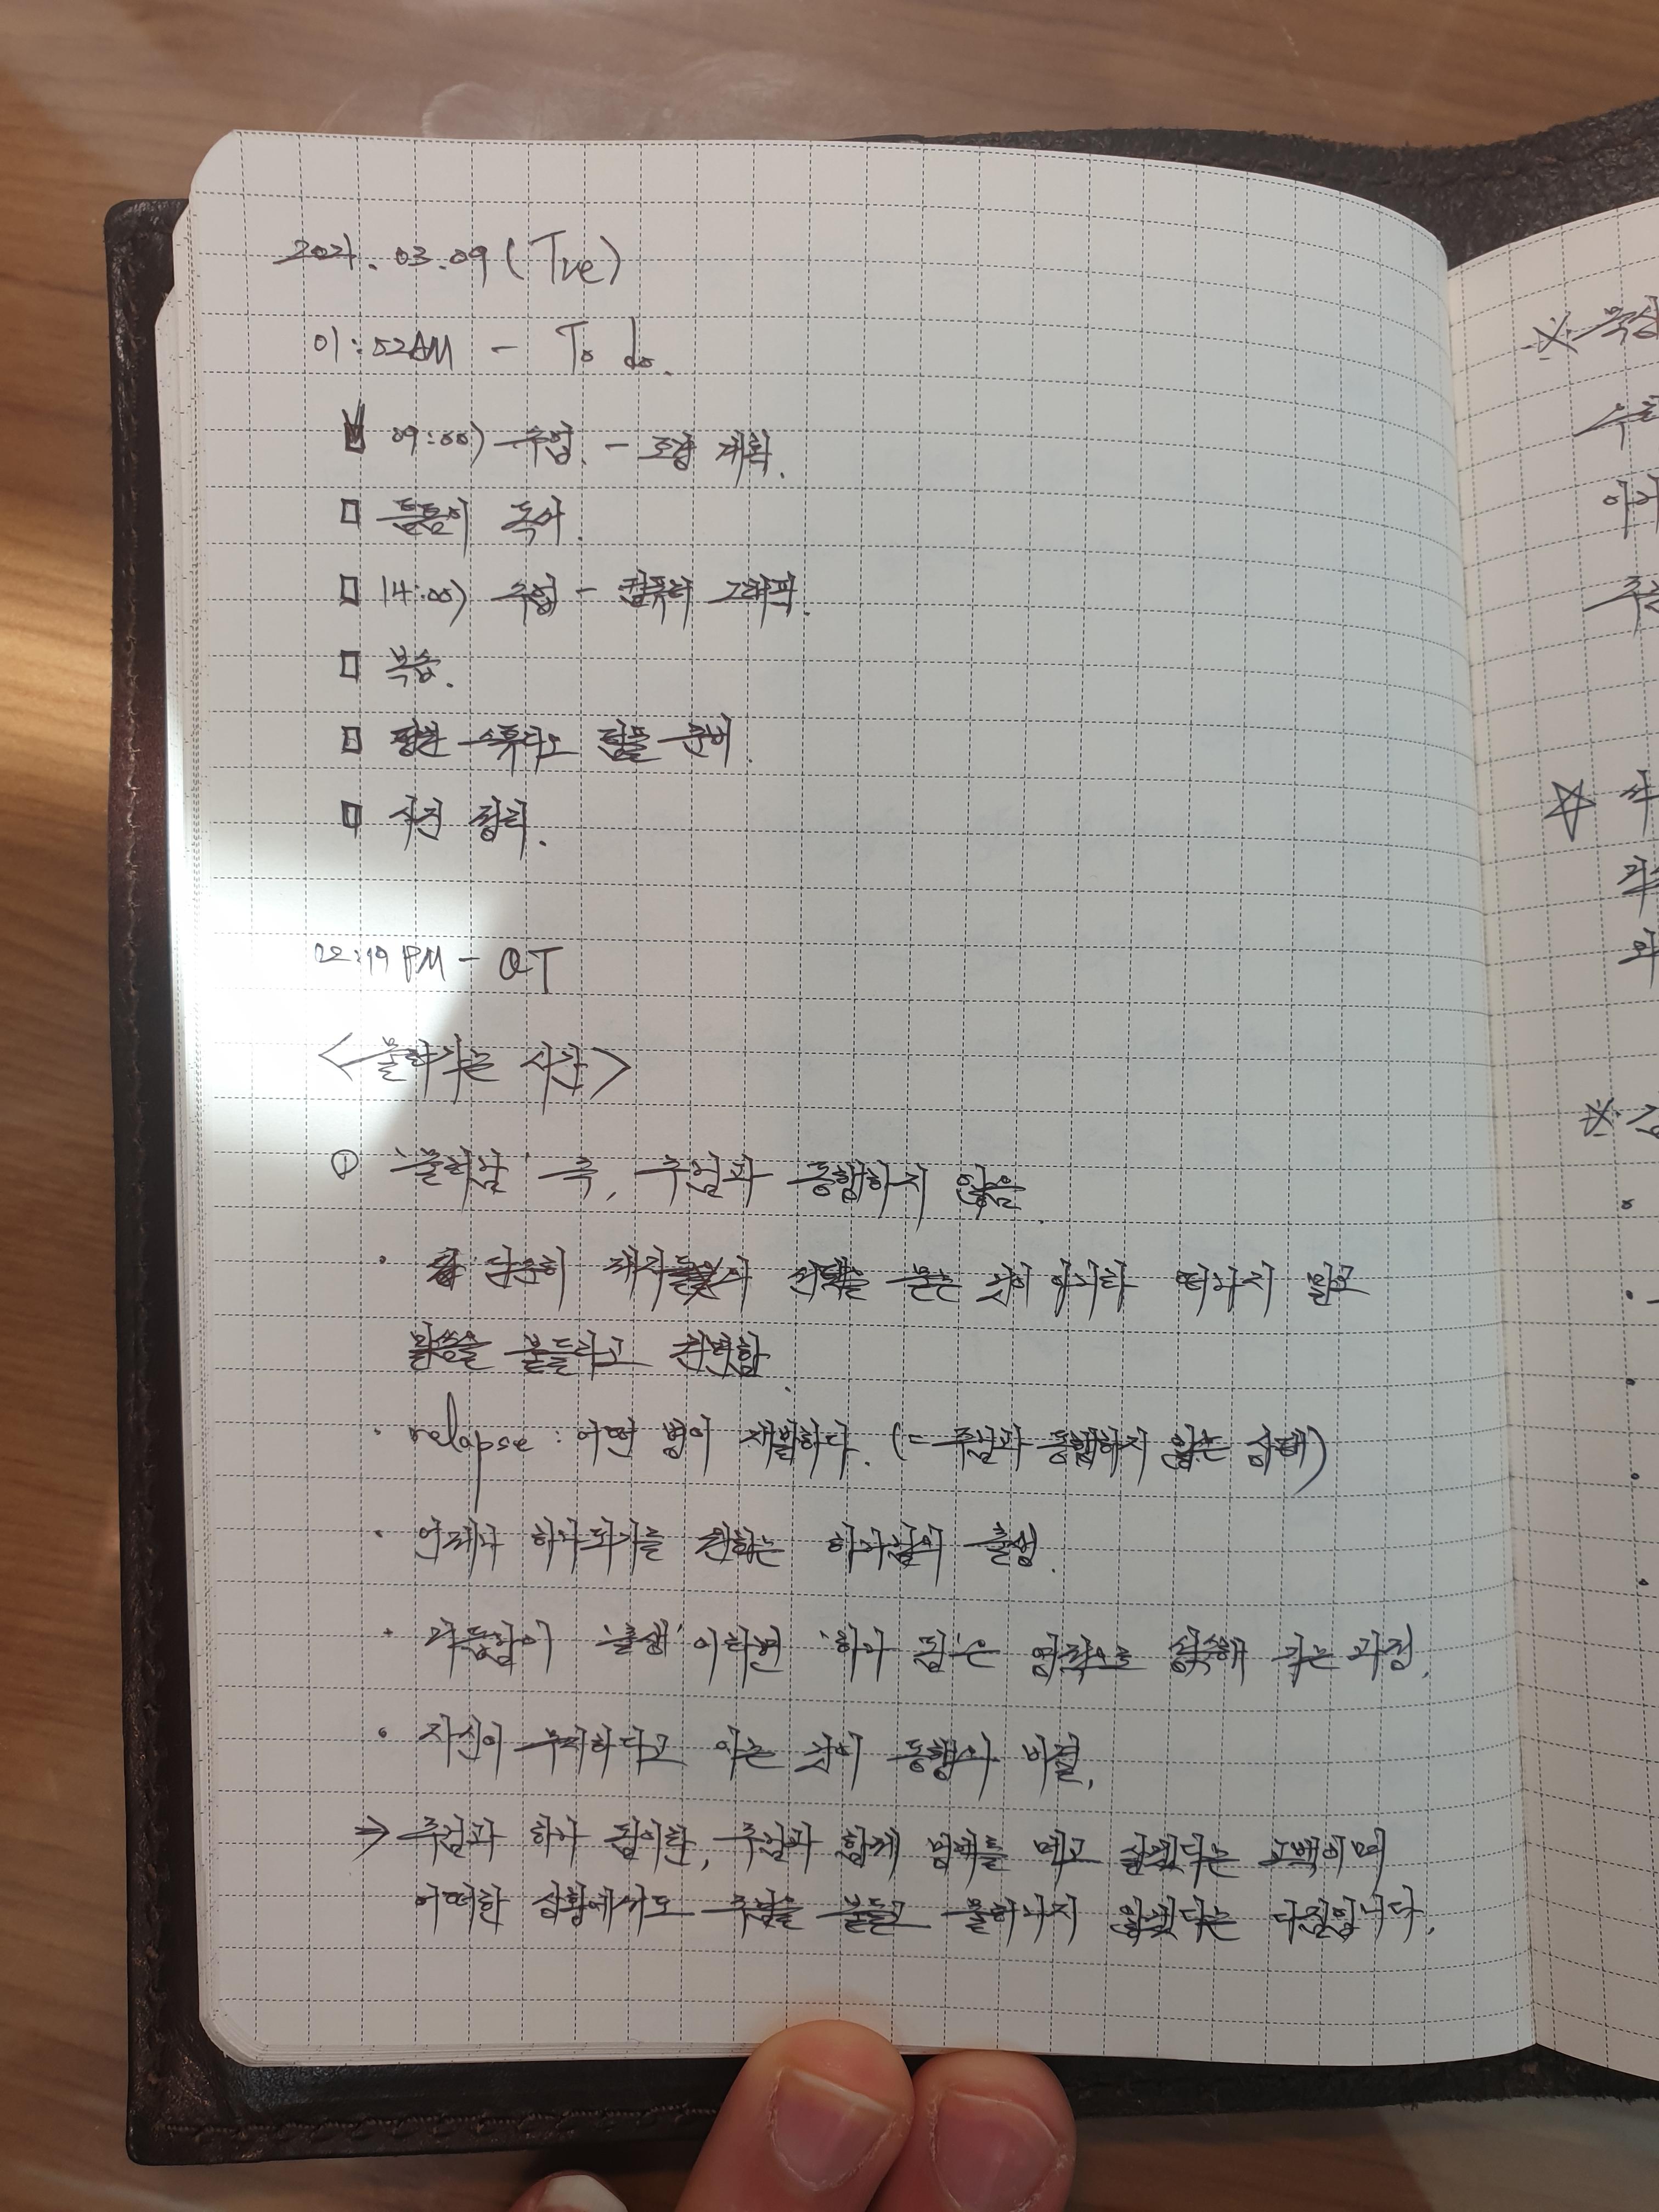 2021.03.09 (Tue)
01:52AM - To do.
09:00) 수업. - 조합 계획.
틈틈이 독서.
14:00) 수업 - 컴퓨터 그래픽.
복습.
스튜디오 준비.
사진 정리.
02:19 PM - QT
<물러가는 시간>
① '물러남' 즉, 주님과 동행하지 않음.
· 단순히 제자들의 선택을 묻는 것이 아니라 떠나지 말고
말씀을 붙들라고 권면함.
· relapse : 어떤 병이 재발하다. (= 주님과 동행하지 않는 상태)
· 언제나 하나되기를 원하는 하나님의 출생.
· 거듭남이 '출생'이라면 '하나 됨'은 영적으로 성숙해 가는 과정.
· 자신이 무지하다고 아는 것이 동행의 비결.
⇒ 주님과 하나 됨이란, 주님과 함께 멍에를 메고 살겠다는 고백이며
어떠한 상황에서도 주님을 붙들고 물러나지 않겠다는 다짐입니다.
※
☆
※